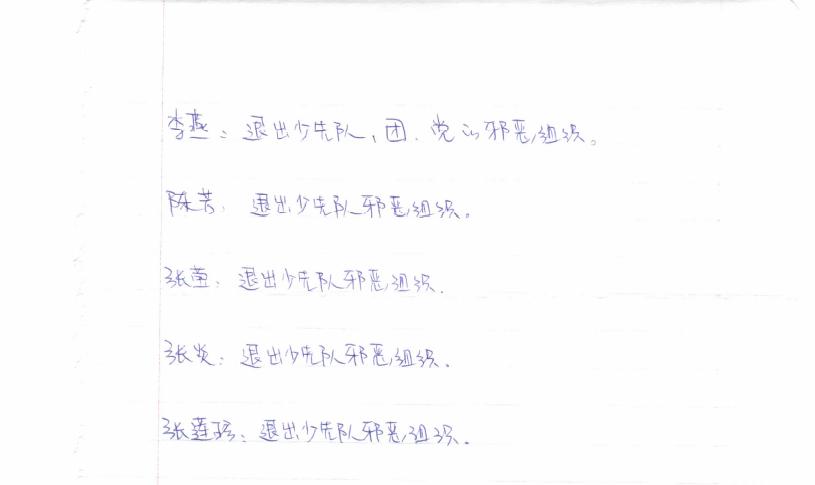 李燕：退出少先队、团、党的邪恶组织。
陈芳：退出少先队邪恶组织。
张莲：退出少先队邪恶组织.
张炎：退出少先队邪恶组织.
张莲珍：退出少先队邪恶组织.